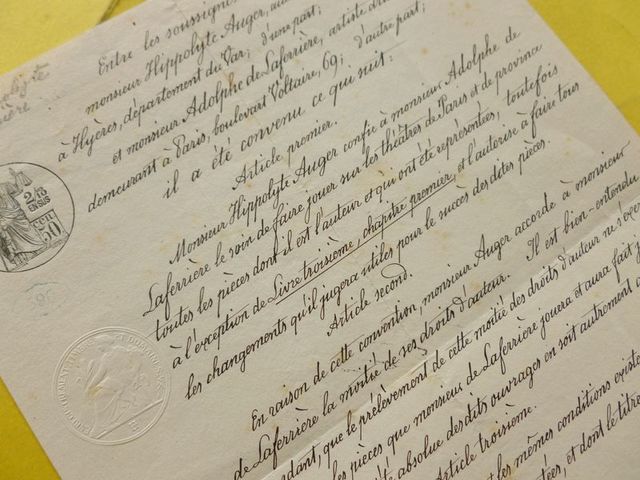 Entre les soussignés
monsieur Hippolyte Auger, au
à Hyères, département du Var; d'une part;
et monsieur Adolphe de Laferrière, artiste dra
demeurant à Paris, boulevard Voltaire, 69; d'autre part;
il a été convenu ce qui suit:
Article premier.
Monsieur Hippolyte Auger confie à monsieur Adolphe de
Laferrière le soin de faire jouer sur les théâtres de Paris et de province
toutes les pièces dont il est l'auteur et qui ont été représentées, toutefois
à l'exception de Livre troisième, chapitre premier, et l'autorise à faire tous
les changements qu'il jugera utiles pour le succès des dites pièces.
Article second.
En raison de cette convention, monsieur Auger accorde à monsieur
de Laferrière la moitié de ses droits d'auteur. Il est bien-entendu
dant, que le prélèvement de cette moitié des droits d'auteur ne s'exer
les pièces que monsieur de Laferrière jouera et aura fait j
été absolue des dits ouvrages en soit autrement a
Article troisième.
les mêmes conditions existe
tées, et dont le titre
2/10
EN SUS
50